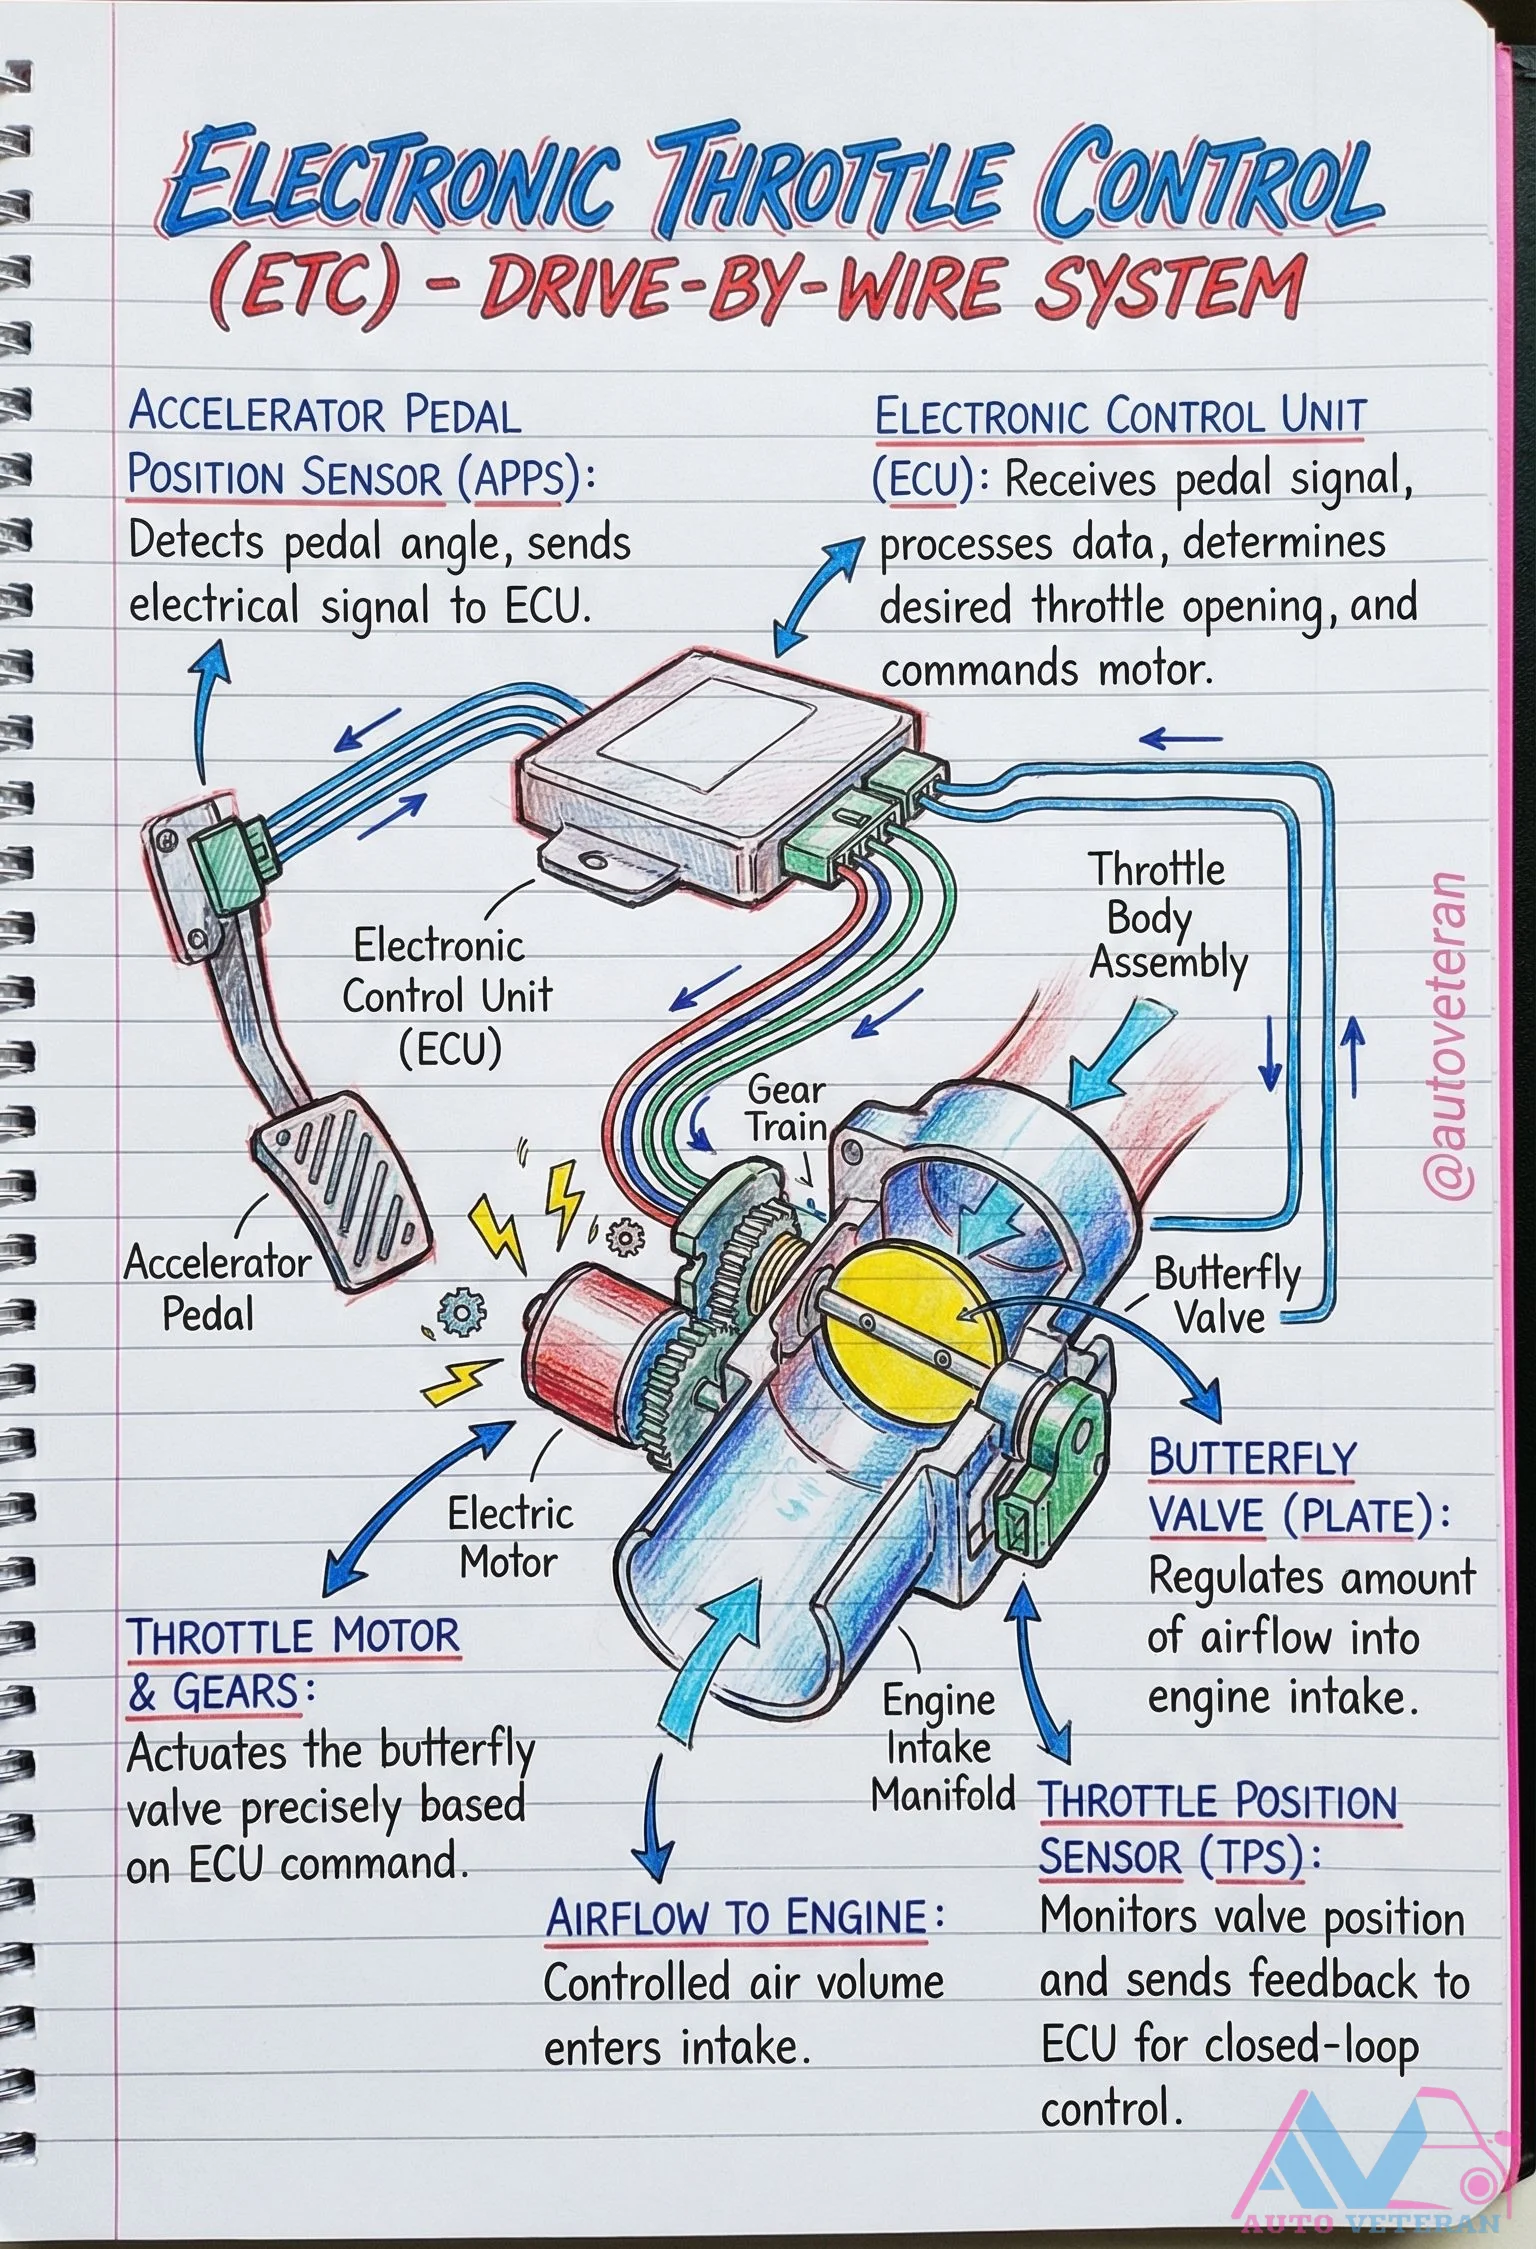 ELECTRONIC THROTTLE CONTROL
(ETC) - DRIVE-BY-WIRE SYSTEM
ACCELERATOR PEDAL
POSITION SENSOR (APPS):
Detects pedal angle, sends
electrical signal to ECU.
ELECTRONIC CONTROL UNIT
(ECU): Receives pedal signal,
processes data, determines
desired throttle opening, and
commands motor.
Throttle
Body
Assembly
Electronic
Control Unit
(ECU)
@autoveteran
Gear
Train
Accelerator
Pedal
Butterfly
Valve
Electric
Motor
BUTTERFLY
VALVE (PLATE):
Regulates amount
of airflow into
engine intake.
THROTTLE MOTOR
& GEARS:
Actuates the butterfly
valve precisely based
on ECU command.
Engine
Intake
Manifold
THROTTLE POSITION
SENSOR (TPS):
Monitors valve position
and sends feedback to
ECU for closed-loop
control.
AIRFLOW TO ENGINE:
Controlled air volume
enters intake.
AV
AUTO VETERAN